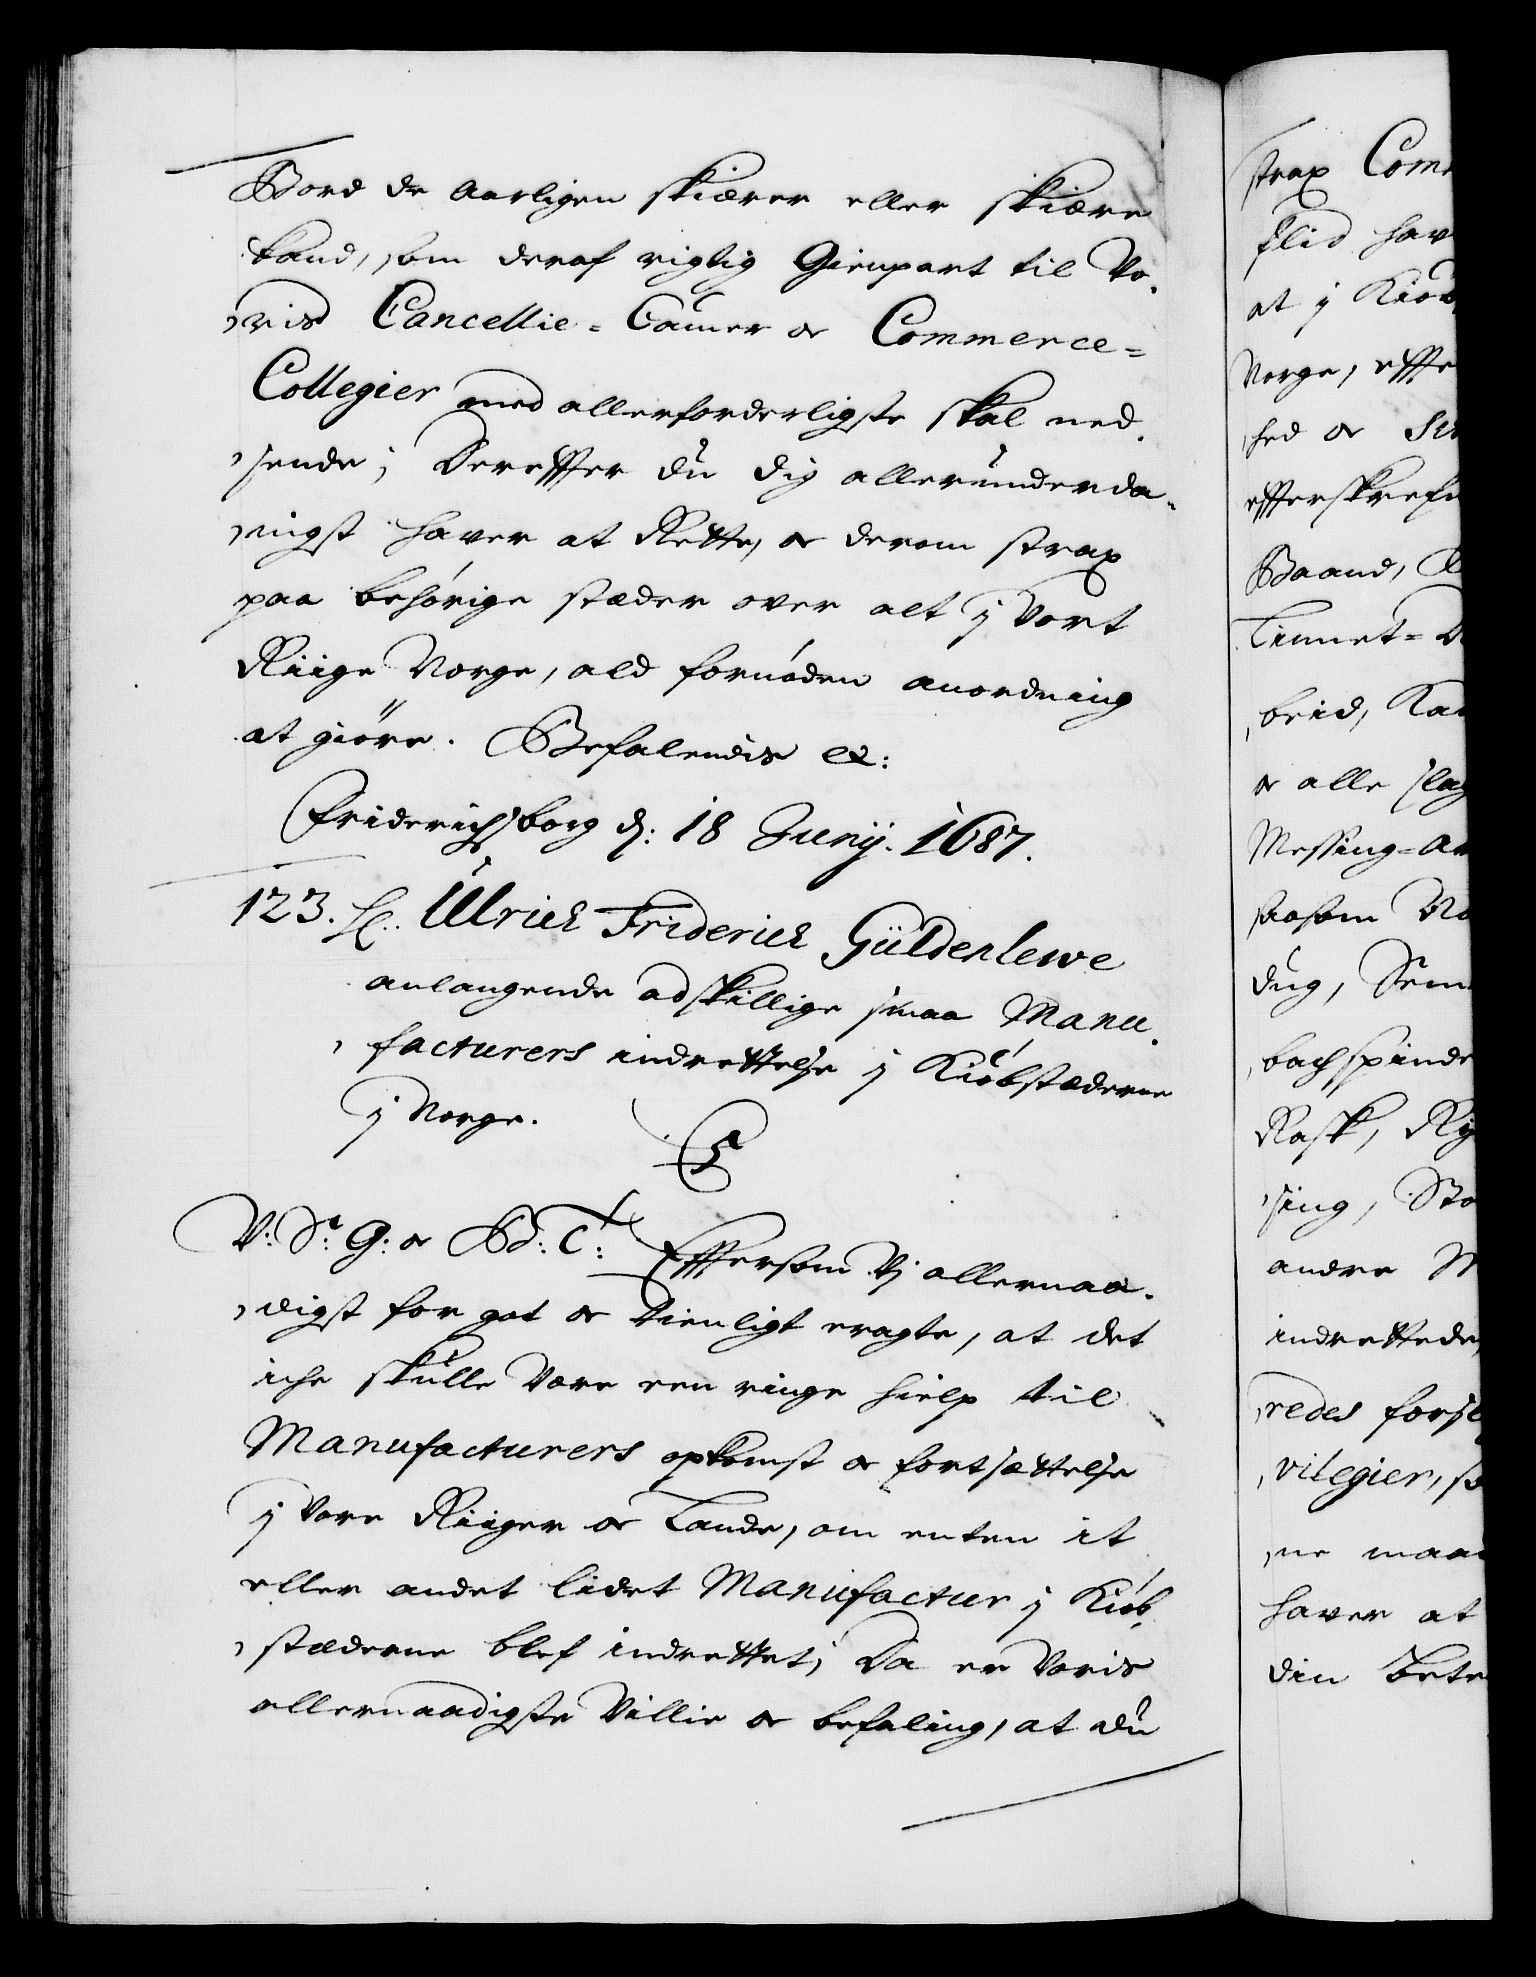 Bord de Aarligen skiærer eller skiære
kand, som deraf rigtig Gienpart til Vo-
ris Cancellie-Camer oc Commerce-
Collegier med allerforderligste skal ned-
sende; Derefter du dig allerunderda-
nigst haver at Rette, oc derom strax
paa behörige stæder over alt j vort
Riige Norge, ald fornøden anordning
at giöre. Befalendis etc:
Friderichsborg d: 18 Junij. 1687.
123. Ulrich Friderich Güldenlewe
anlangende adskillige smaa Manu-
facturers indrettelse j Kiöbstæderne
j Norge.
V: S: G: oc B: C: Eftersom Vj allernaa-
digst for got oc tienligt eragte, at det
iche skulle være een ringe hielp til
Manufacturers opkomst oc fortsættelse
j Vore Riiger oc Lande, om enten it
eller andet lidet Manufactur j Kiöb-
stæderne blef indrettet; Da er Voris
allernaadigste Villie oc befaling, at du
strax Com
flid hav
at j Kiöb
Norge, effte
hed oc
effterskrefn
Baand,
Linnet-
beid, Kam
oc alle slag
Messing-Ar
saasom
dug,
bachspinde
Rask, Ry
sing, Sto
andre M
indrettede,
redes forse
vilegier, so
ne maa
haver at
din bete